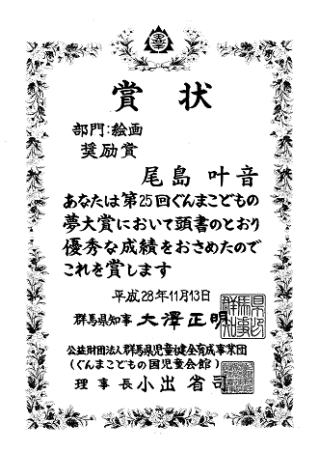 賞状
部門:絵画
奨励賞
尾島 叶音
あなたは第25回ぐんまこどもの
夢大賞において頭書のとおり
優秀な成績をおさめたので
これを賞します
平成28年11月13日
群馬県知事 大澤正明
公益財団法人群馬県児童健全育成事業団
(ぐんまこどもの国児童会館)
理事長 小出 省司